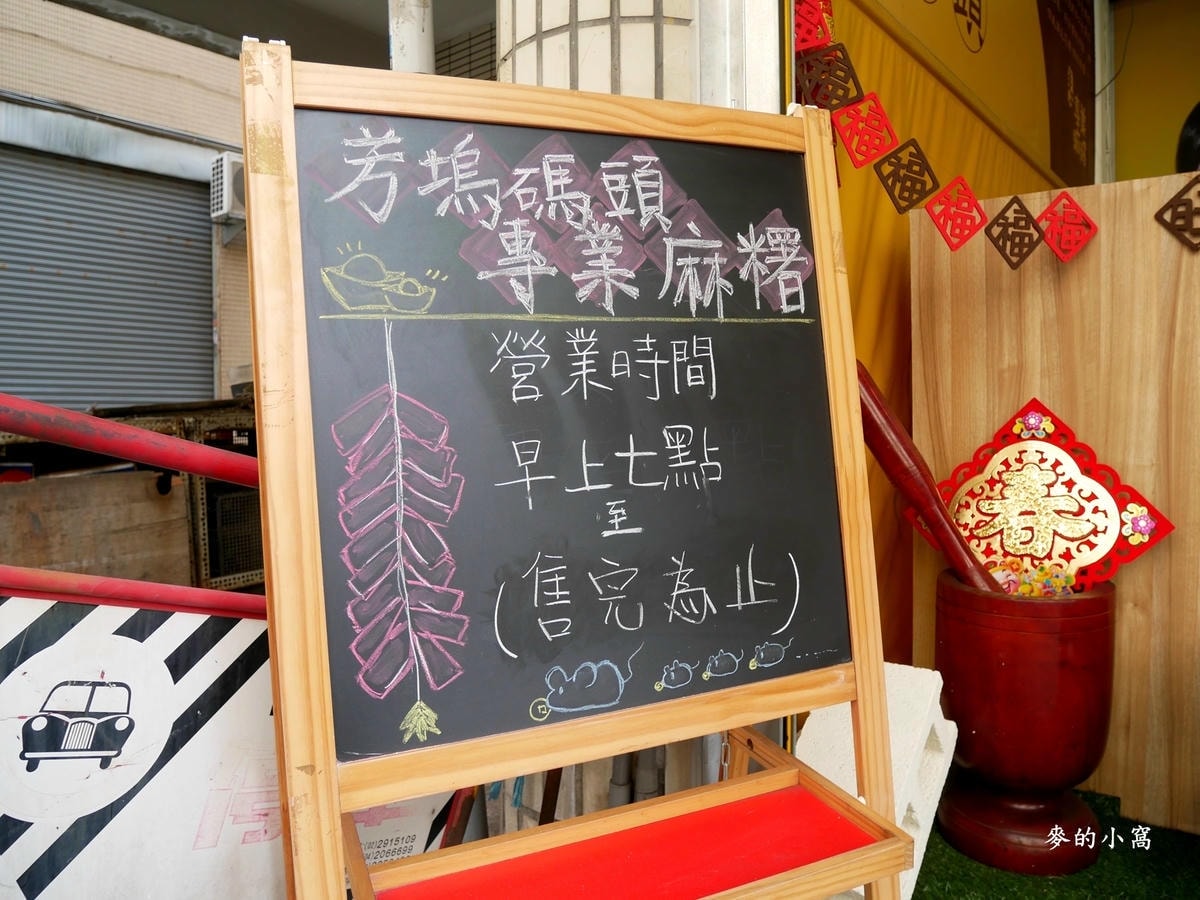 芳塢碼頭
專業麻糬
營業時間
早上七點
至
(售完為止)
福
福
福
福
福
福
春
2915109
2066699
麥的小窩